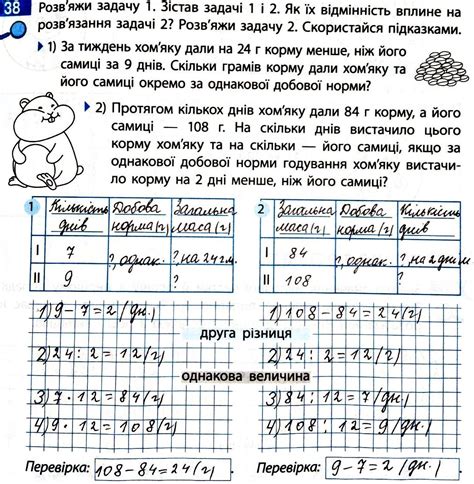 38
Розв'яжи задачу 1. Зістав задачі 1 і 2. Як їх відмінність вплине на
розв'язання задачі 2? Розв'яжи задачу 2. Скористайся підказками.
1) За тиждень хом'яку дали на 24 г корму менше, ніж його
самиці за 9 днів. Скільки грамів корму дали хом'яку та
його самиці окремо за однакової добової норми?
2) Протягом кількох днів хом'яку дали 84 г корму, а його
самиці — 108 г. На скільки днів вистачило цього
корму хом'яку та на скільки — його самиці, якщо за
однакової добової норми годування хом'яку вистачи-
ло корму на 2 дні менше, ніж його самиці?
1 Кількість Добова Загальна
днів норма(г) маса(г)
I 7 ?, однак. ?, на 24 г м.
II 9 ?
2 Загальна Добова Кількість
маса(г) норма(г) днів
I 84 ?, однак. ?, на 2 дн м
II 108 ?
1) 9 – 7 = 2 (дн.)
1) 108 – 84 = 24 (г)
друга різниця
2) 24 : 2 = 12 (г)
2) 24 : 2 = 12 (г)
однакова величина
3) 7 · 12 = 84 (г)
3) 84 : 12 = 7 (дн.)
4) 9 · 12 = 108 (г)
4) 108 : 12 = 9 (дн.)
Перевірка: 108 – 84 = 24 (г)
Перевірка: 9 – 7 = 2 (дн.)